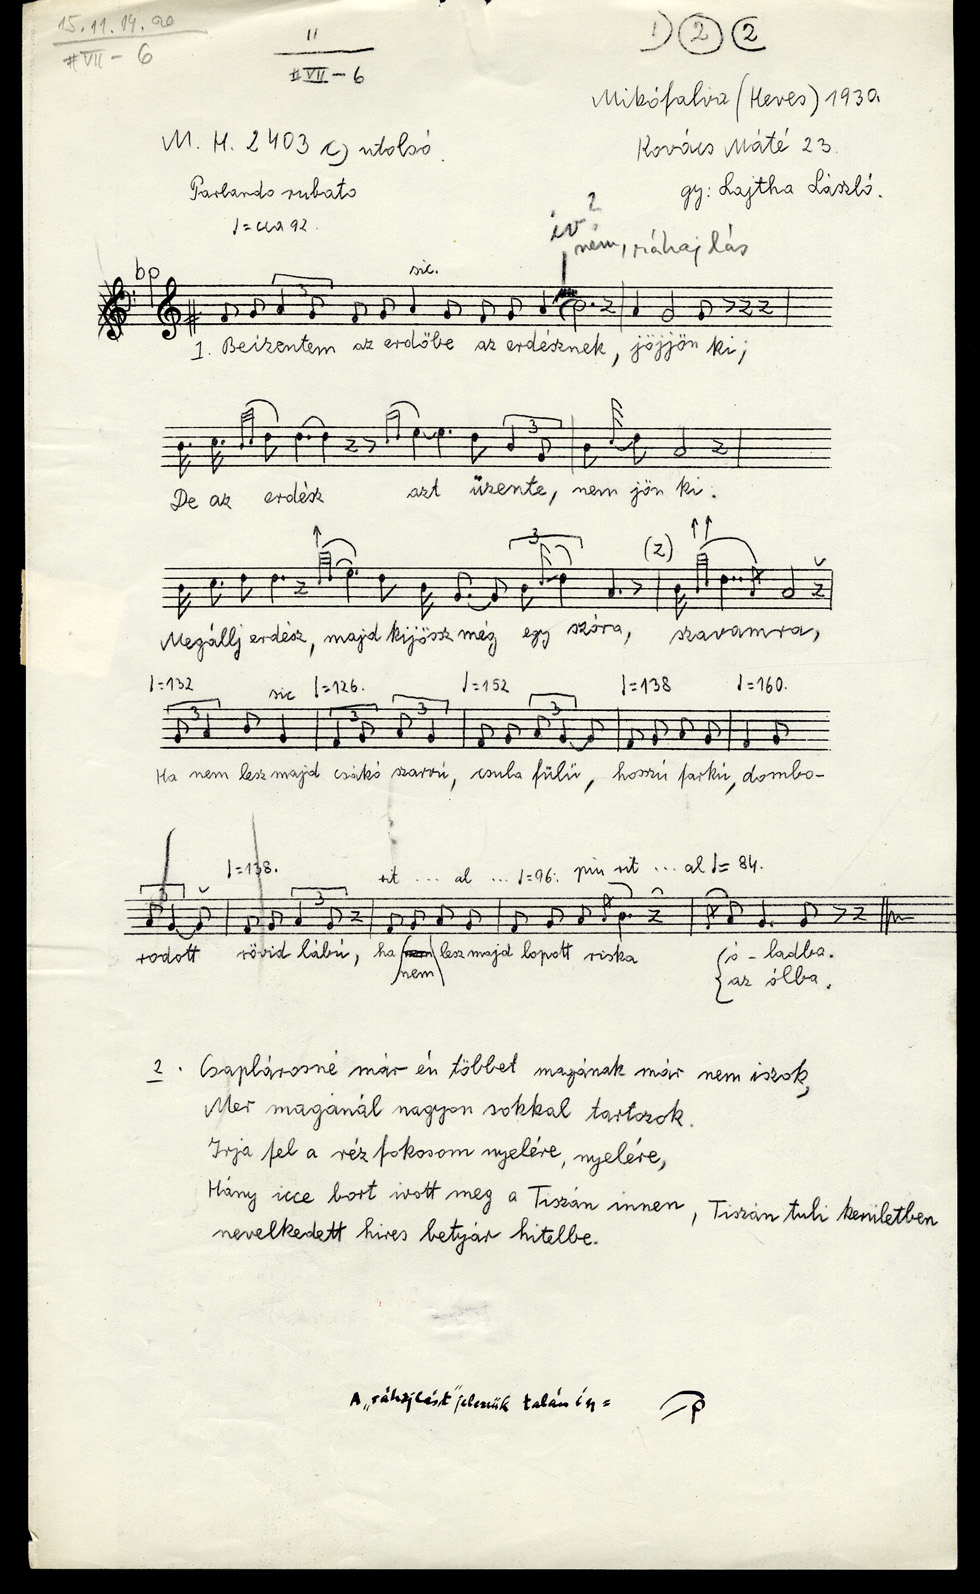 15.11.14.20
#VII - 6
11
#VII - 6
1) 2 2
Mikófalva (Heves) 1930.
M. H. 2403 c) utolsó.
Kovács Máté 23.
Parlando rubato
gy: Lajtha László.
♩= cca 92.
ív?
nem, ráhajlás
bp
sic.
3
1. Beizentem az erdőbe az erdésznek, jöjjön ki;
3
De az erdész azt üzente, nem jön ki.
3
(z)
Megállj erdész, majd kijössz még egy szóra, szavamra,
♩=132 sic ♩=126. ♩=152 ♩=138 ♩=160.
3 3 3 3
Ha nem lesz majd csákó szarvú, csula fülü, hosszú farkú, dombo-
♩=138. rit ... al ... ♩=96. piu rit ... al ♩= 84.
3 3
rodott rövid lábú, ha (nem) lesz majd lopott riska { ó - ladba.
nem { az ólba.
2. Csaplárosné már én többet magának már nem iszok,
Mer magánál nagyon sokkal tartozok.
Irja fel a réz fokosom nyelére, nyelére,
Hány icce bort ivott meg a Tiszán innen, Tiszán tuli kerületben
nevelkedett hires betyár hitelbe.
A „ráhajlást" jelezzük talán így =